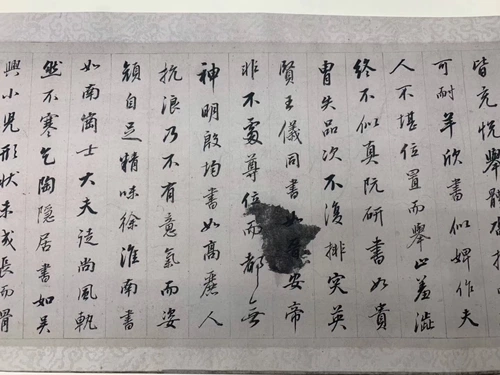 皆充悅舉體
可耐羊欣書似婢作夫
人不堪位置而舉止羞澀
終不似真阮研書如貴
胄失品次不復排突英
賢王儀同書如晉安帝
非不處尊位而都無
神明殷均書如高麗人
抗浪乃不有意氣而姿
顏自足精味徐淮南書
如南崗士大夫徒尚風軌
然不寒乞陶隱居書如吳
興小兒形狀未成長而骨